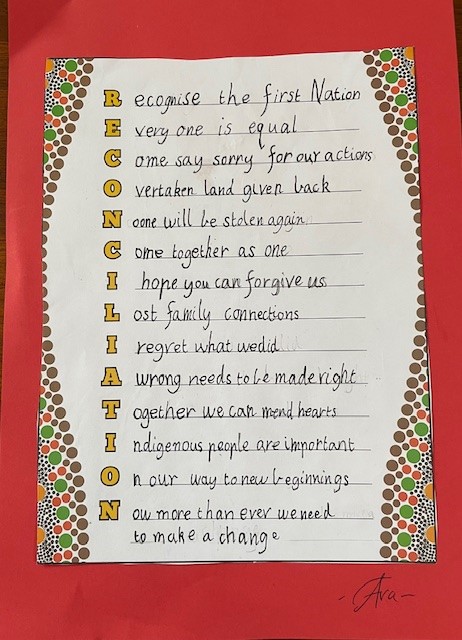 Recognise the first Nation
Every one is equal
Come say sorry for our actions
Overtaken land given back
Noone will be stolen again
Come together as one
I hope you can forgive us
Lost family connections
I regret what we did
A wrong needs to be made right
Together we can mend hearts
Indigenous people are important
On our way to new beginnings
Now more than ever we need
to make a change
- Ava -